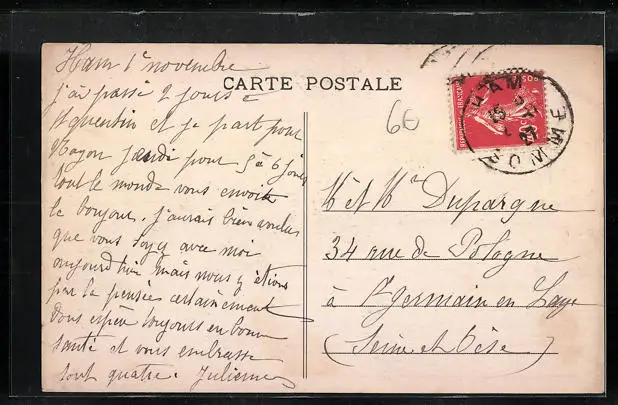 Ham 1e novembre
CARTE POSTALE
j'ai passé 2 jours à
St quentin et je part pour
Noyon jeudi pour 5 à 6 jours
tout le monde vous envoie
le bonjour. j'aurais bien voulus
que vous soyez avec moi
aujourd'hui mais nous y étions
par la pensée certainement
vous espère toujours en bonne
santé et vous embrasse
tout quatre. Julienne
6€
HAM
SOMME
Mr et Me Dupargne
34 rue de Pologne
à St germain en Laye
(Seine et Oise)